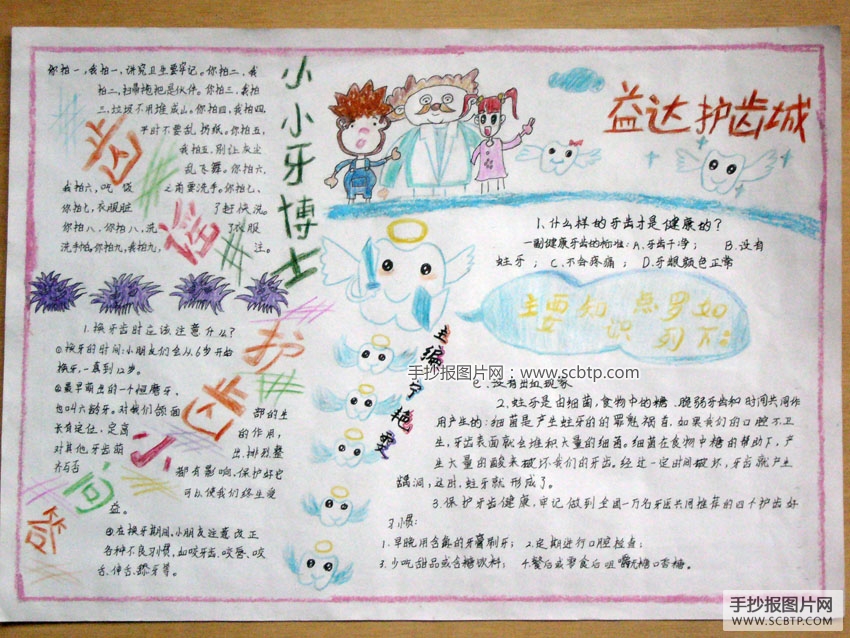 你拍一,我拍一,讲究卫生要牢记。你拍二,我
拍二,扫帚拖把是伙伴。你拍三,我拍
三,垃圾不用堆成山。你拍四,我拍四,
平时不要乱扔纸。你拍五,
我拍五,别让灰尘
乱飞舞。你拍六,
我拍六,吃饭之前要洗手。你拍七、
你拍七,衣服脏了赶快洗。
你拍八,你拍八,洗衣服
洗手帕。你拍九,我拍九,
齿
谣
小小牙博士
益达护齿城
1.什么样的牙齿才是健康的?
一副健康牙齿的标准:A.牙齿干净; B.没有
蛀牙; C.不会疼痛; D.牙龈颜色正常
主要知识点罗列如下:
E.没有出血现象
2.蛀牙是由细菌,食物中的糖、脆弱牙齿和时间共同作
用产生的:细菌是产生蛀牙的的罪魁祸首,如果我们的口腔不卫
生,牙齿表面就会堆积大量的细菌。细菌在食物中糖的帮助下,产
生大量的酸来破坏我们的牙齿。经过一定时间破坏,牙齿就产生
龋洞,这时,蛀牙就形成了。
3.保护牙齿健康,牢记做到全国一万名牙医共同推荐的四个护齿好
习惯:
1.早晚用含氟的牙膏刷牙; 2.定期进行口腔检查;
3.少吃甜品或含糖饮料; 4.餐后或零食后咀嚼无糖口香糖。
主编宁艳雯
1.换牙齿时应该注意什么?
①换牙的时间:小朋友们会从6岁开始
换牙,一直到12岁。
②最早萌出的一个恒磨牙,
也叫六龄牙。对我们颌面部的生
长有定位,定高的作用,
对其他牙齿萌出、排列整
齐与否都有影响,保护好它
可以使我们终生受
益。
③在换牙期间,小朋友注意改正
各种不良习惯,如咬牙齿、咬唇、咬
舌、伸舌、舔牙等。
护齿小问答
手抄报图片网:www.scbtp.com
手抄报图片网
WWW.SCBTP.COM